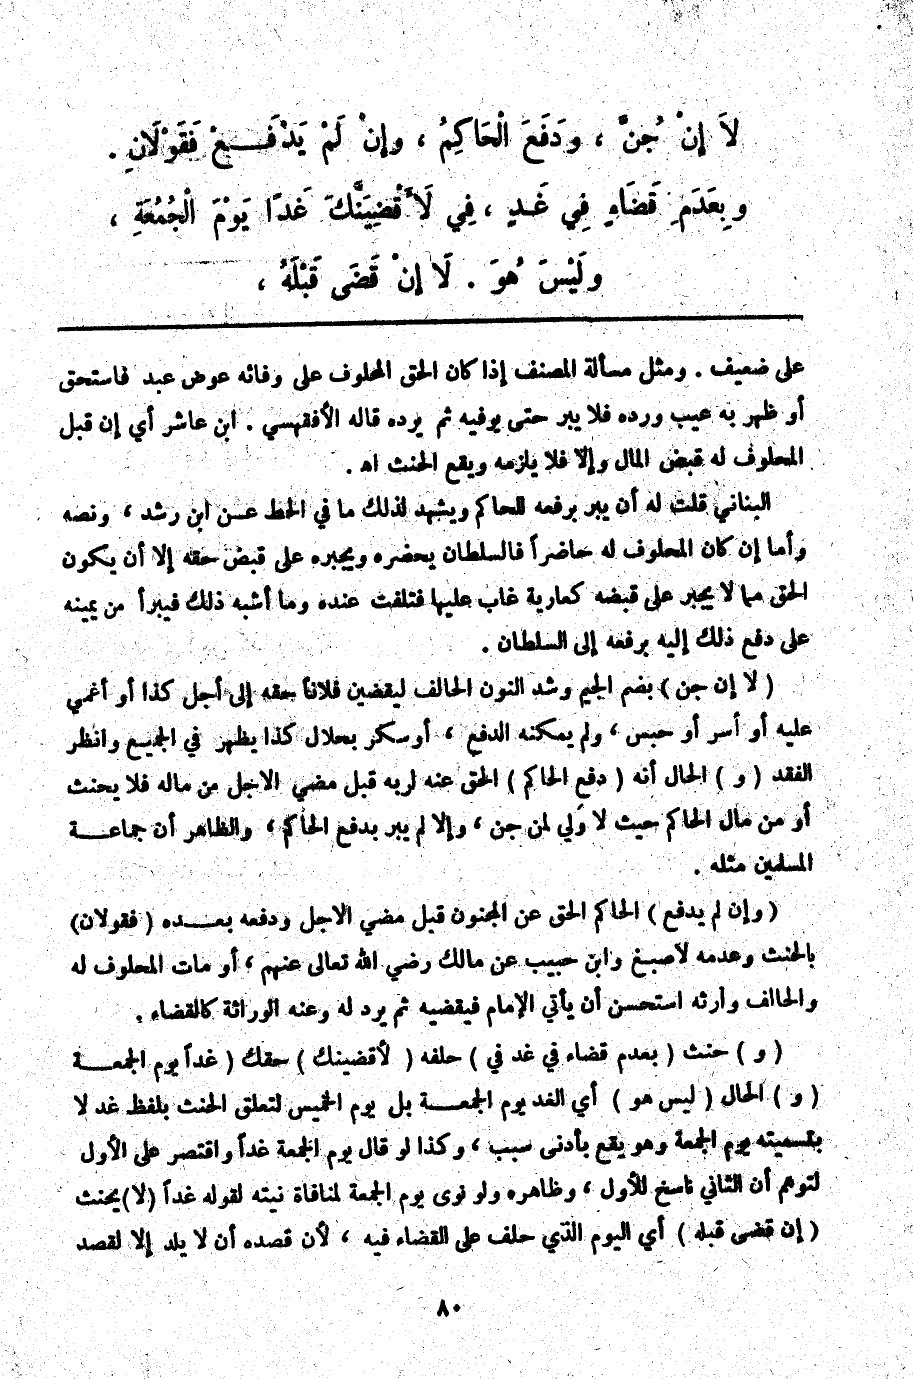 لاَ إِنْ جُنَّ ، وَدَفَعَ الْحَاكِمُ ، وإِنْ لَمْ يَدْفَـــعْ فَقَوْلَانِ .
وبِعَدَمِ قَضَاءٍ فِي غَـدٍ ، فِي لَأَقْضِيَنَّكَ غَدًا يَوْمَ الْجُمُعَةِ ،
ولَيْسَ هُوَ . لَا إِنْ قَضَى قَبْلَهُ ،
على ضعيف . ومثل مسألة المصنف إذا كان الحق المحلوف على وفائه عوض عبد فاستحق
أو ظهر به عيب ورده فلا يبر حتى يوفيه ثم يرده قاله الأفقهسي . ابن عاشر أي إن قبل
المحلوف له قبض المال وإلا فلا يلزمه ويقع الحنث اه .
البناني قلت له أن يبر برفعه للحاكم ويشهد لذلك ما في الحط عـن ابن رشد ، ونصه
وأما إن كان المحلوف له حاضراً فالسلطان يحضره ويجبره على قبض حقه إلا أن يكون
الحق مما لا يجبر على قبضه كعارية غاب عليها فتلفت عنده وما أشبه ذلك فيبرأ من يمينه
على دفع ذلك إليه برفعه إلى السلطان .
( لا إن جن ) بضم الجيم وشد النون الحالف ليقضين فلاناً حقه إلى أجل كذا أو أغمي
عليه أو أسر أو حبس ، ولم يمكنه الدفع ، أو سكر بحلال كذا يظهر في الجميع وانظر
الفقد ( و ) الحال أنه ( دفع الحاكم ) الحق عنه لربه قبل مضي الاجل من ماله فلا يحنث
أو من مال الحاكم حيث لا وَلي لمن جن ، وإلا لم يبر بدفع الحاكم ، والظاهر أن جماعـــة
المسلمين مثله .
( وإن لم يدفع ) الحاكم الحق عن المجنون قبل مضي الاجل ودفعه بعـــده ( فقولان)
بالحنث وعدمه لأصبغ وابن حبيب عن مالك رضي الله تعالى عنهم ، أو مات المحلوف له
والحالف وارثه استحسن أن يأتي الإمام فيقضيه ثم يرد له وعنه الوراثة كالقضاء .
( و ) حنث ( بعدم قضاء في غد في ) حلفه ( لأقضينك ) حقك ( غداً يوم الجمعـــة
( و ) الحال ( ليس هو ) أي الغد يوم الجمعـــة بل يوم الخميس لتعلق الحنث بلفظ غد لا
بتسميته يوم الجمعة وهو يقع بأدنى سبب ، وكذا لو قال يوم الجمعة غداً واقتصر على الأول
لتوهم أن الثاني ناسخ للأول ، وظاهره ولو نوى يوم الجمعة لمنافاة نيته لقوله غداً (لا)يحنث
( إن قضى قبله ) أي اليوم الذي حلف على القضاء فيه ، لأن قصده أن لا يلد إلا لقصد
٨٠